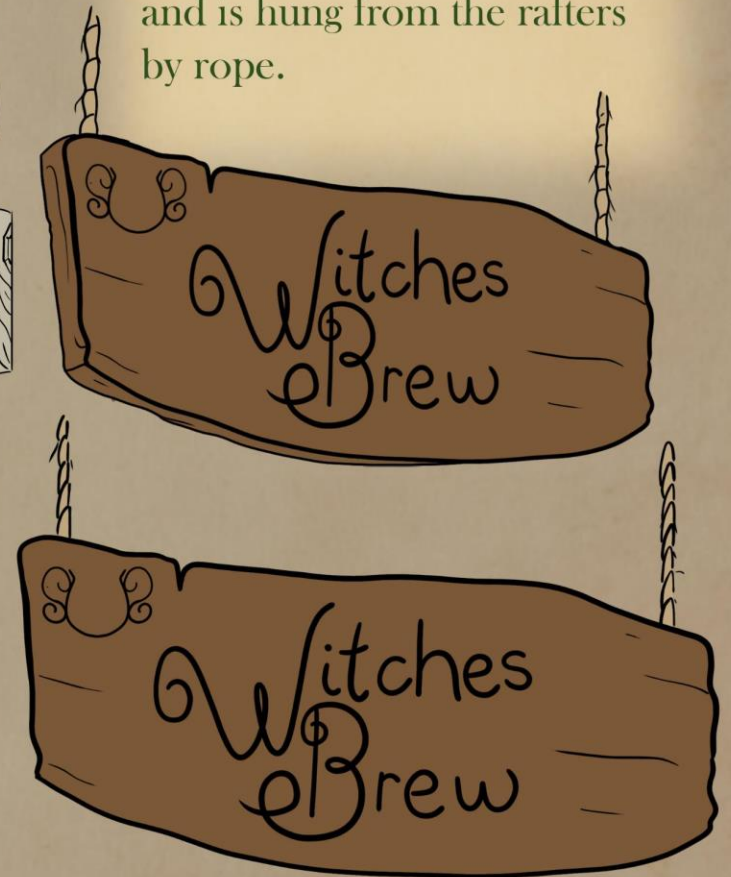 and is hung from the rafters
by rope.
Witches
Brew
Witches
Brew